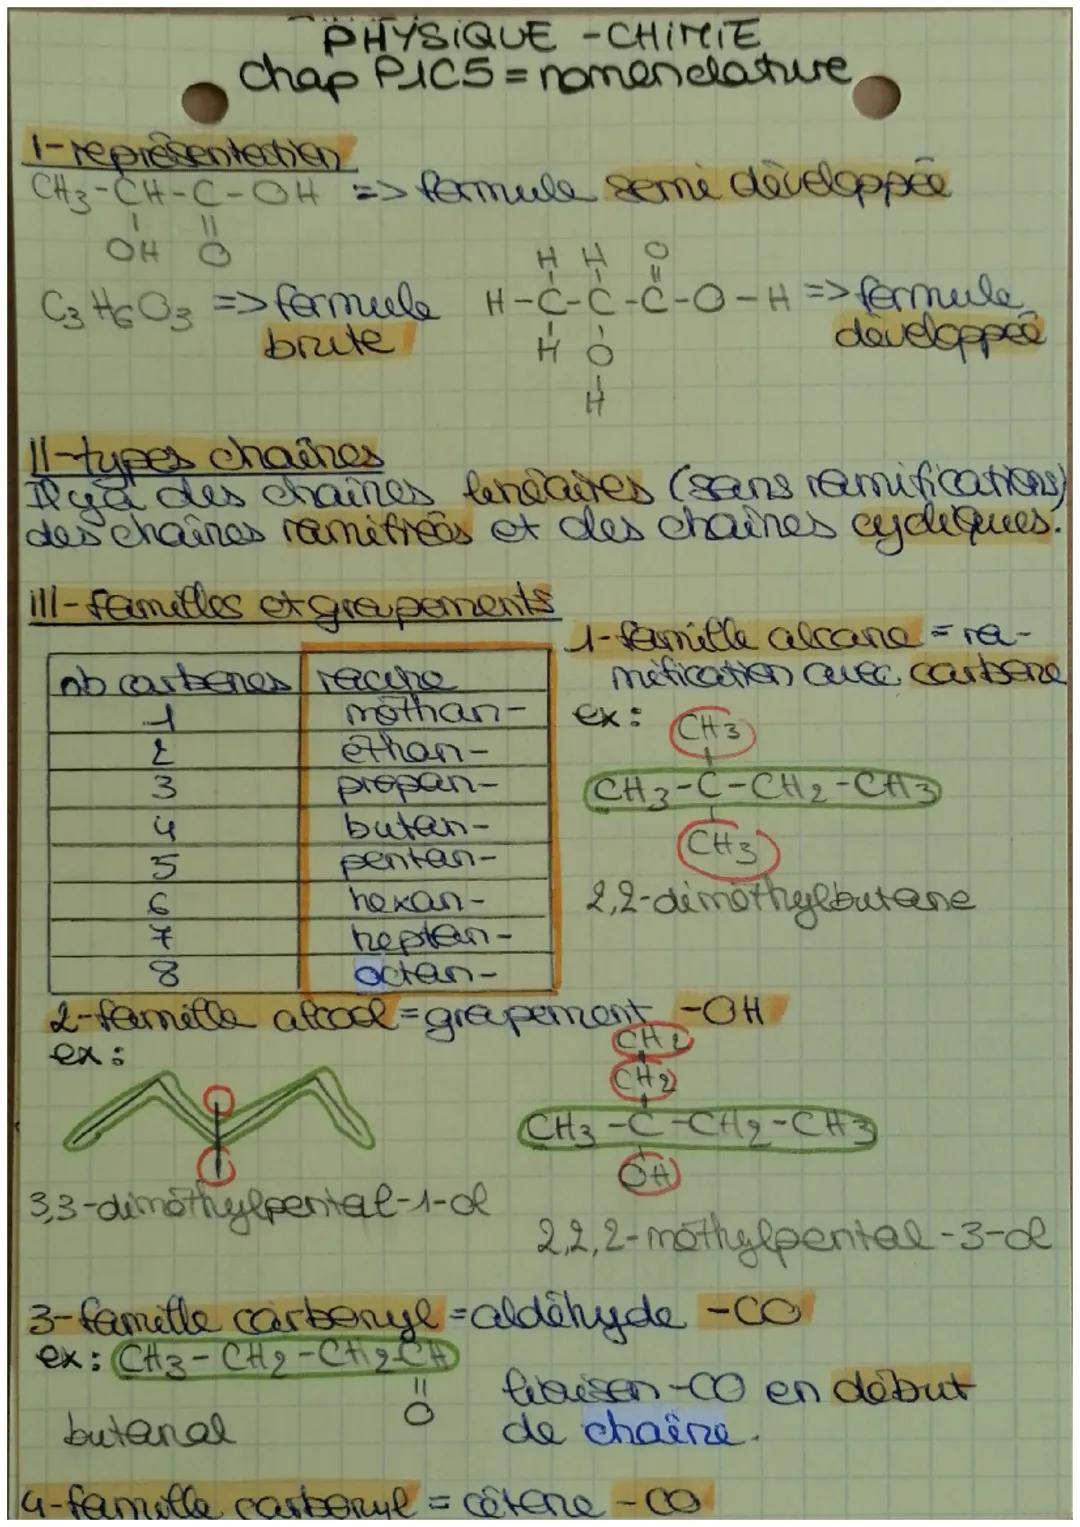 PHYSIQUE - CHIMIE
Chap P1C5 = nomenclature
I - représentation
CH3 - CH - C - OH => formule semi développée
OH O
H H O
C3 H6 O3 => formule brute
H - C - C - C - O - H => formule développée
H O
H
II - types chaînes
Il y a des chaînes linéaires (sans ramifications)
des chaînes ramifiées et des chaînes cycliques.
III - familles et groupements
nb carbones racine
1 méthan-
2 éthan-
3 propan-
4 butan-
5 pentan-
6 hexan-
7 heptan-
8 octan-
1 - famille alcane = ra-
mification avec carbone
ex :
CH3
CH3 - C - CH2 - CH3
CH3
2,2-diméthylbutane
2 - famille alcool = groupement -OH
ex :
3,3-diméthylpental-1-ol
CH2
CH2
CH3 - C - CH2 - CH3
OH
2,2,2-méthylpental-3-ol
3 - famille carbonyl = aldéhyde -CO
ex : CH3 - CH2 - CH2 - CH
O
butanal
liaison -CO en début
de chaîne.
4 - famille carbonyl = cétone -CO